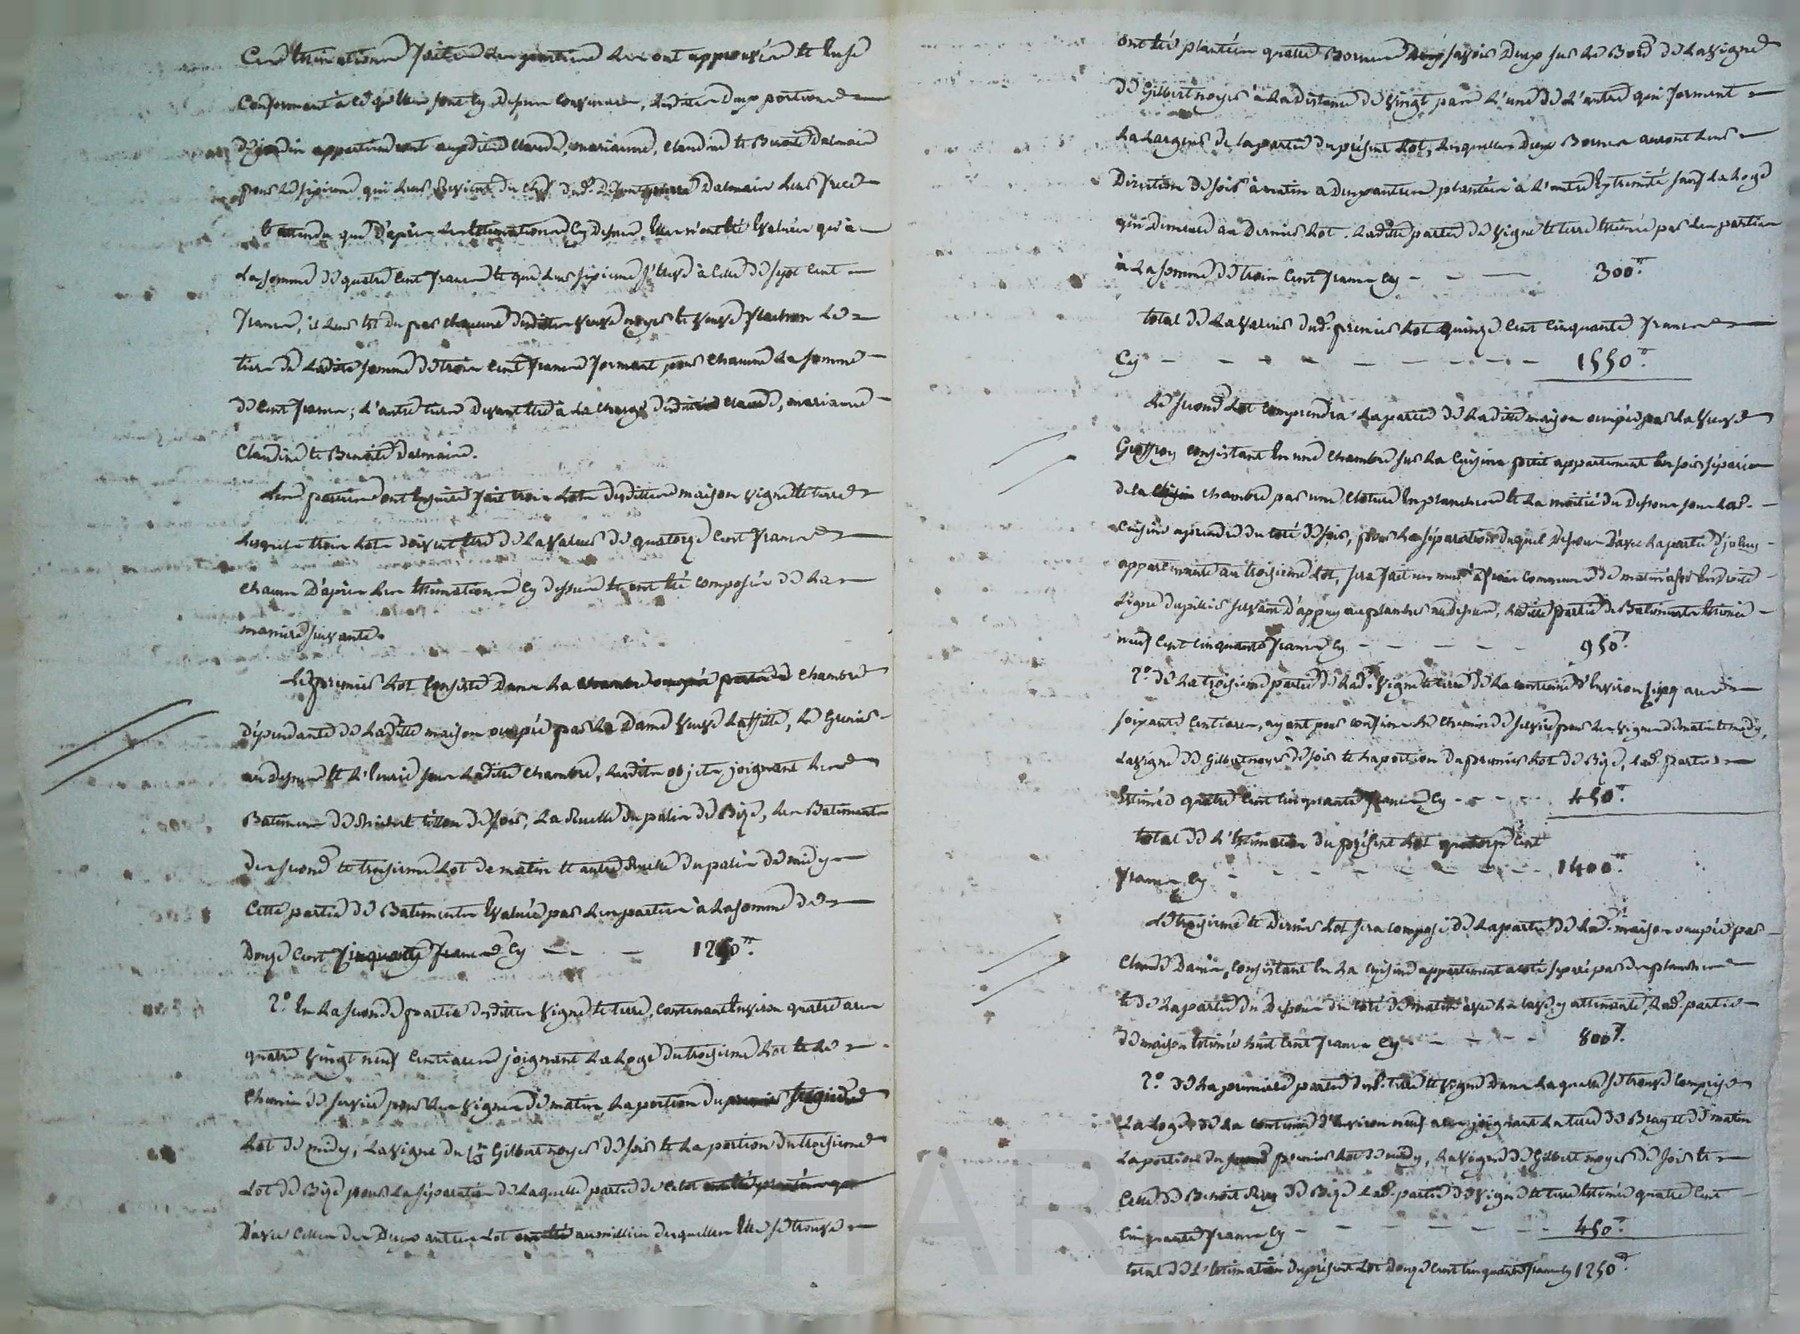 Ces Estimations faites les parties les ont approuvées et en se
Conformant à ce qu'elles sont cy dessus convenues, lesdites deux portions
de jardin appartiendront auxdites Claude, Marianne, Claudine et Benoite Dalmais
pour le sixieme qui leur revient du chef dud. Dalmais leur frere
Et attendu que d'après les Estimations cy dessus elles n'ont été Evaluées qu'à
la somme de quatre cent francs et que leur sixieme s'éleve à celle de sept cent
francs, il leur est du par chacune desdites veuve noyer et veuve le
tiers de ladite somme de trois cent francs formant pour chacune la somme
de cent francs; l'autre tiers devant etre à la charge desdites Claude, Marianne
Claudine et Benoite Dalmais.
Les parties ont ensuite fait trois lots desdittes maison vigne et terre
lesquels trois lots doivent etre de la valeur de quatorze cent francs
chacun d'après les Estimations cy dessus et ont été composés de la
maniere suivante.
Le premier lot consiste dans la chambre
dépendante de laditte maison occupée par la Dame veuve Laffitte, le grenier
au dessus et l'ecurie sous ladite chambre, lesdits objets joignant les
Batimens de de soir, la Ruelle du patin de Bize, les Batiments
des second et troisieme lot de matin et autre Ruelle du patin de midy
Cette partie de Batiments Evaluée par les parties à la somme de
Douze Cent Cinquante francs Cy — 1250.
2.° En la seconde partie desdittes vigne et terre, contenant Environ quatre ares
quatre vingt neuf centiares joignant la loge du troisieme lot et le
Chemin de service pour les vignes de matin, la portion du
lot de midy, la vigne du s.r Gilbert noyer de soir et la portion du troisieme
lot de Bize pour la séparation de laquelle partie de ce lot
D'avec celles des deux autres lot au millieu desquelles elle se trouve
ont été plantées quatre Bornes savoir deux sur le Bord de la vigne
de Gilbert noyer à la distance de vingt pas l'une de l'autre qui forment
la largeur de la partie du présent lot, lesquelles deux Bornes auront leur
Direction de soir à matin a deux autres plantées à l'autre Extremité sauf la loge
qui demeure au dernier lot. Ladite partie de vigne et terre Estimée par les parties
à la somme de trois cent francs Cy — 300.
total de la valeur dud. premier lot quinze cent cinquante francs
Cy — 1550.
Le second lot comprendra la partie de ladite maison occupée par la veuve
consistant en une chambre sur la cuisine petit appartement de soir séparé
de la chambre par une cloture en planches et la moitié du dessous sous la
cuisine a prendre du coté de soir, pour la séparation duquel dessous d'avec la partie d'icelui
appartenante au troisieme lot, sera fait un mur à frais communs de matin à soir en droite
ligne du pillier servant d'appuy aux plantres au dessus, ladite partie de Batiments Estimée
neuf cent cinquante francs Cy — 950.
2.° de la troisieme partie de lad. vigne et terre de la contenue d'Environ six ares
soixante centiares, ayant pour confins le chemin de service pour les vignes de matin et midy,
la vigne de Gilbert noyer de soir et la portion du premier lot de Bize, lad. partie
Estimée quatre cent cinquante francs Cy — 450.
total de l'Estimation du présent lot quatorze cent
francs Cy — 1400.
Le troisieme et dernier lot sera composé de la partie de lad. maison occupée par
Claude Danis, consistant en la cuisine appartement a coté separé par des planches
et de la partie du dessous du coté de matin avec la cave y attenante, lad. partie
de maison Estimée huit cent francs Cy — 800.
2.° de la premiere partie desd. terre et vigne dans laquelle se trouve comprise
la loge de la contenue d'Environ neuf ares joignant la terre de de matin
la portion du premier lot de midy, la vigne de Gilbert noyer de soir et
celle de Benoit Rey de Bize lad. partie de vigne et terre Estimée quatre cent
cinquante francs Cy — 450.
total de l'Estimation du présent lot douze cent cinquante francs Cy 1250.